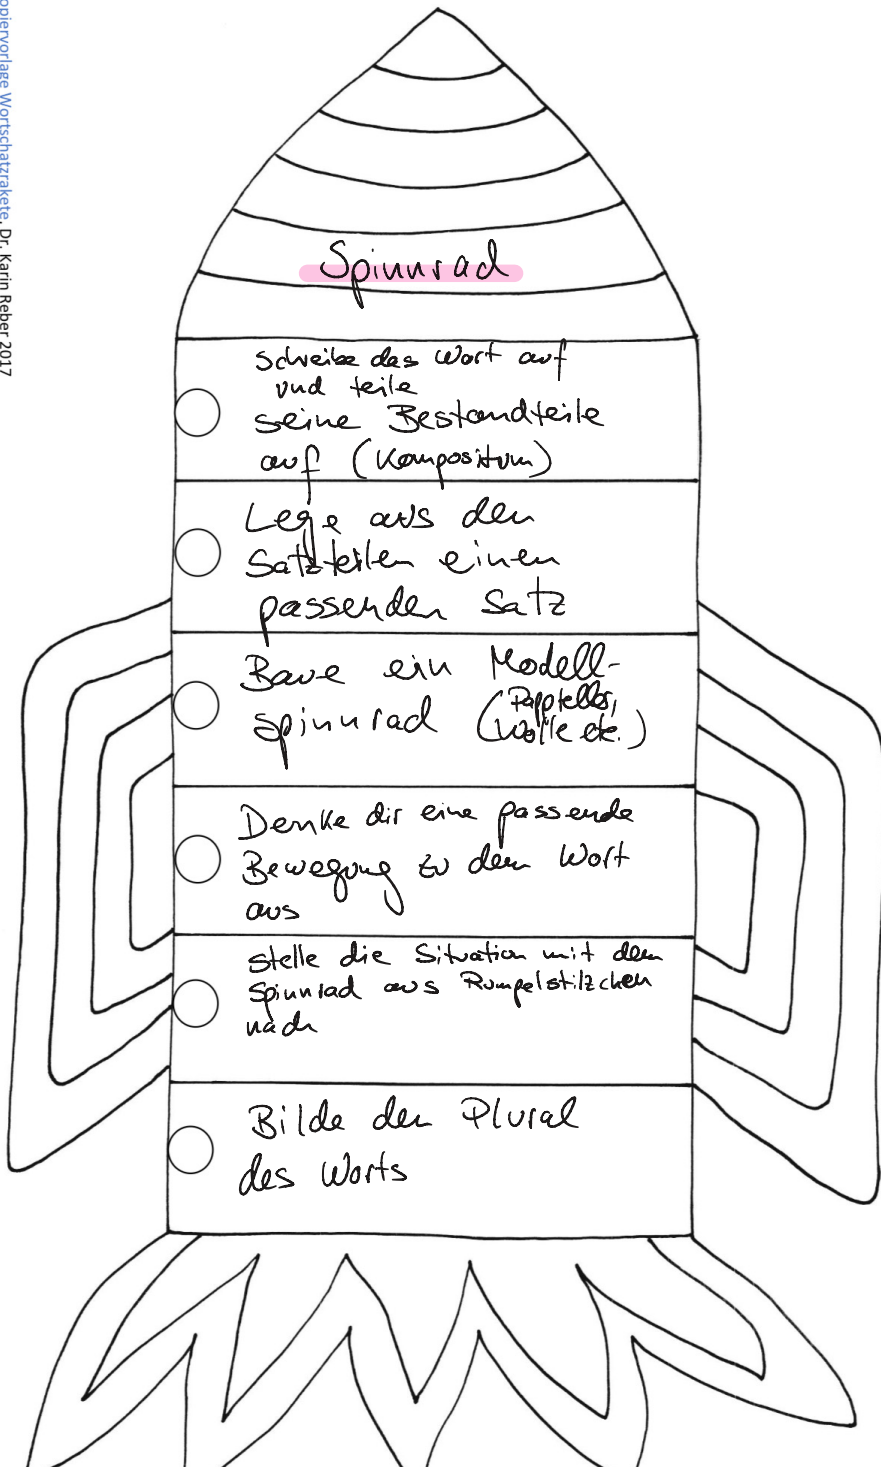 opiervorlage Wortschatzrakete, Dr. Karin Reber 2017
Spinnrad
Schreibe das Wort auf
und teile
seine Bestandteile
auf (Kompositum)
Lege aus den
Satzteilen einen
passenden Satz
Baue ein Modell-
spinnrad (Pappteller,
Wolle etc.)
Denke dir eine passende
Bewegung zu dem Wort
aus
Stelle die Situation mit dem
Spinnrad aus Rumpelstilzchen
nach
Bilde den Plural
des Worts